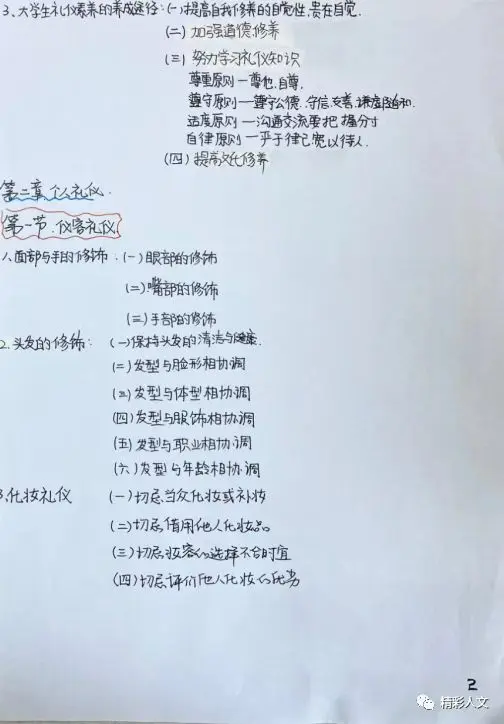 3、大学生礼仪素养的养成途径:(一)提高自我修养的自觉性,贵在自觉.
(二) 加强道德修养
(三) 努力学习礼仪知识
尊重原则一尊他.自尊.
遵守原则一遵守公德.守信.友善.谦虚随和.
适度原则一沟通交流要把握分寸
自律原则一严于律己宽以待人.
(四) 提高文化修养
第二章 个人礼仪.
第一节.仪容礼仪
1、面部与手的修饰:(一)眼部的修饰
(二)嘴部的修饰
(三)手部的修饰
2.头发的修饰: (一)保持头发的清洁与健康.
(二)发型与脸形相协调
(三)发型与体型相协调
(四)发型与服饰相协调
(五)发型与职业相协调
(六)发型与年龄相协调
3.化妆礼仪 (一)切忌当众化妆或补妆
(二)切忌借用他人化妆品
(三)切忌妆容的选择不合时宜
(四)切忌评价他人化妆的优劣
2
精彩人文